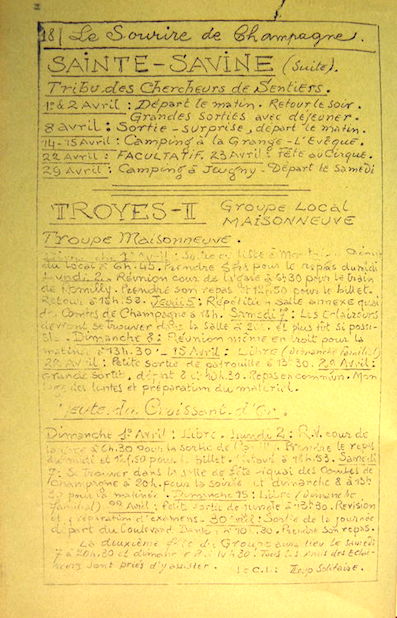 18| Le Sourire de Champagne.
SAINTE-SAVINE (Suite).
Tribu des Chercheurs de Sentiers.
1er & 2 Avril : Départ le matin. Retour le soir.
Grandes Sorties avec déjeuner.
8 avril : Sortie-surprise, départ le matin.
14-15 Avril : Camping à la Grange-L'Evêque.
22 Avril : FACULTATIF. 23 Avril : Fête au Cirque.
29 Avril : Camping à Jeugny - Départ le Samedi
TROYES-II GROUPE LOCAL
MAISONNEUVE
Troupe Maisonneuve.
du Local à 6h.45. Prendre pour le repas du midi
Lundi 2 : Réunion cour de la gare à 6h30 pour le train
de Romilly. Prendre son repas et 12f50 pour le billet.
Retour à 19h.53. Jeudi 5 : Répétition salle annexe quai
des Comtes de Champagne à 18h. Samedi 7 : Les Eclaireurs
devront se trouver dans la salle à et plus tôt si possi-
ble. Dimanche 8 : Réunion même endroit pour la
matinée à 13h.30. - 15 Avril : Libre (dimanche familial)
22 Avril : Petite sortie de patrouille à 13h30. 29 Avril :
Grande sortie, départ à Repas en commun. Mon-
tage des tentes et préparation du matériel.
Meute du Croissant d'Or.
Dimanche 1er Avril : Libre. Lundi 2 : R.V. cour de
la gare à 6h.30 pour la sortie de Romilly. Prendre le repas
de midi et 12f50 pour le billet. Retour à 19h.53. Samedi
7 : Se trouver dans la salle de fête quai des Comtes de
Champagne à 20h. pour la soirée et dimanche 8 à 13h
30 pour la matinée. Dimanche 15 : Libre (dimanche
familial) 22 Avril : Petite sortie de jungle à 13h30. Révision
et préparation d'examens. Sortie de la journée
départ du boulevard Prendre son repas.
La deuxième fête du Groupe aura lieu le samedi
7 à 20h.30 et dimanche 8 à Tous les amis des Eclai-
reurs sont priés d'y assister. Le C.L. : Loup Solitaire.